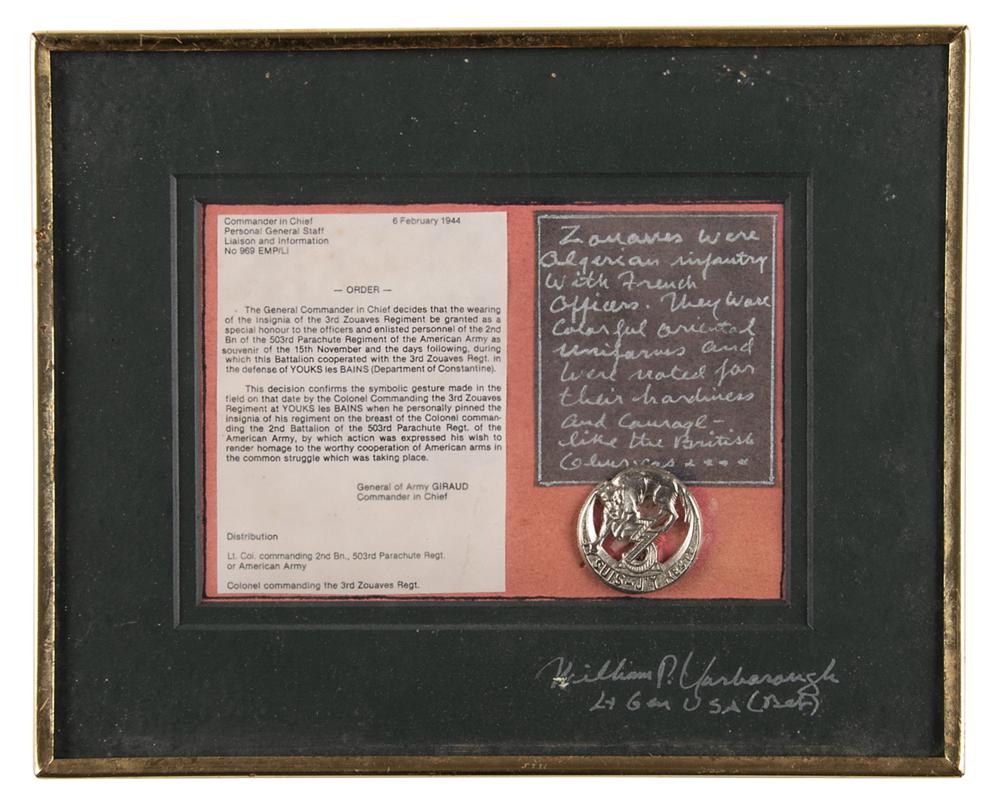 Commander in Chief 6 February 1944
Personal General Staff
Liaison and Information
No 969 EMP/LI
— ORDER —
The General Commander in Chief decides that the wearing
of the insignia of the 3rd Zouaves Regiment be granted as a
special honour to the officers and enlisted personnel of the 2nd
Bn of the 503rd Parachute Regiment of the American Army as
souvenir of the 15th November and the days following, during
which this Battalion cooperated with the 3rd Zouaves Regt. in
the defense of YOUKS les BAINS (Department of Constantine).
This decision confirms the symbolic gesture made in the
field on that date by the Colonel Commanding the 3rd Zouaves
Regiment at YOUKS les BAINS when he personally pinned the
insignia of his regiment on the breast of the Colonel comman-
ding the 2nd Battalion of the 503rd Parachute Regt. of the
American Army, by which action was expressed his wish to
render homage to the worthy cooperation of American arms in
the common struggle which was taking place.
General of Army GIRAUD
Commander in Chief
Distribution
Lt. Col. commanding 2nd Bn., 503rd Parachute Regt.
or American Army
Colonel commanding the 3rd Zouaves Regt.
Zouaves were
Algerian infantry
with French
Officers. They wore
colorful oriental
uniforms and
were noted for
their hardiness
and courage –
like the British
3
J'Y SUIS J'Y RESTE
William P. Yarborough
Lt Gen USA (Ret)